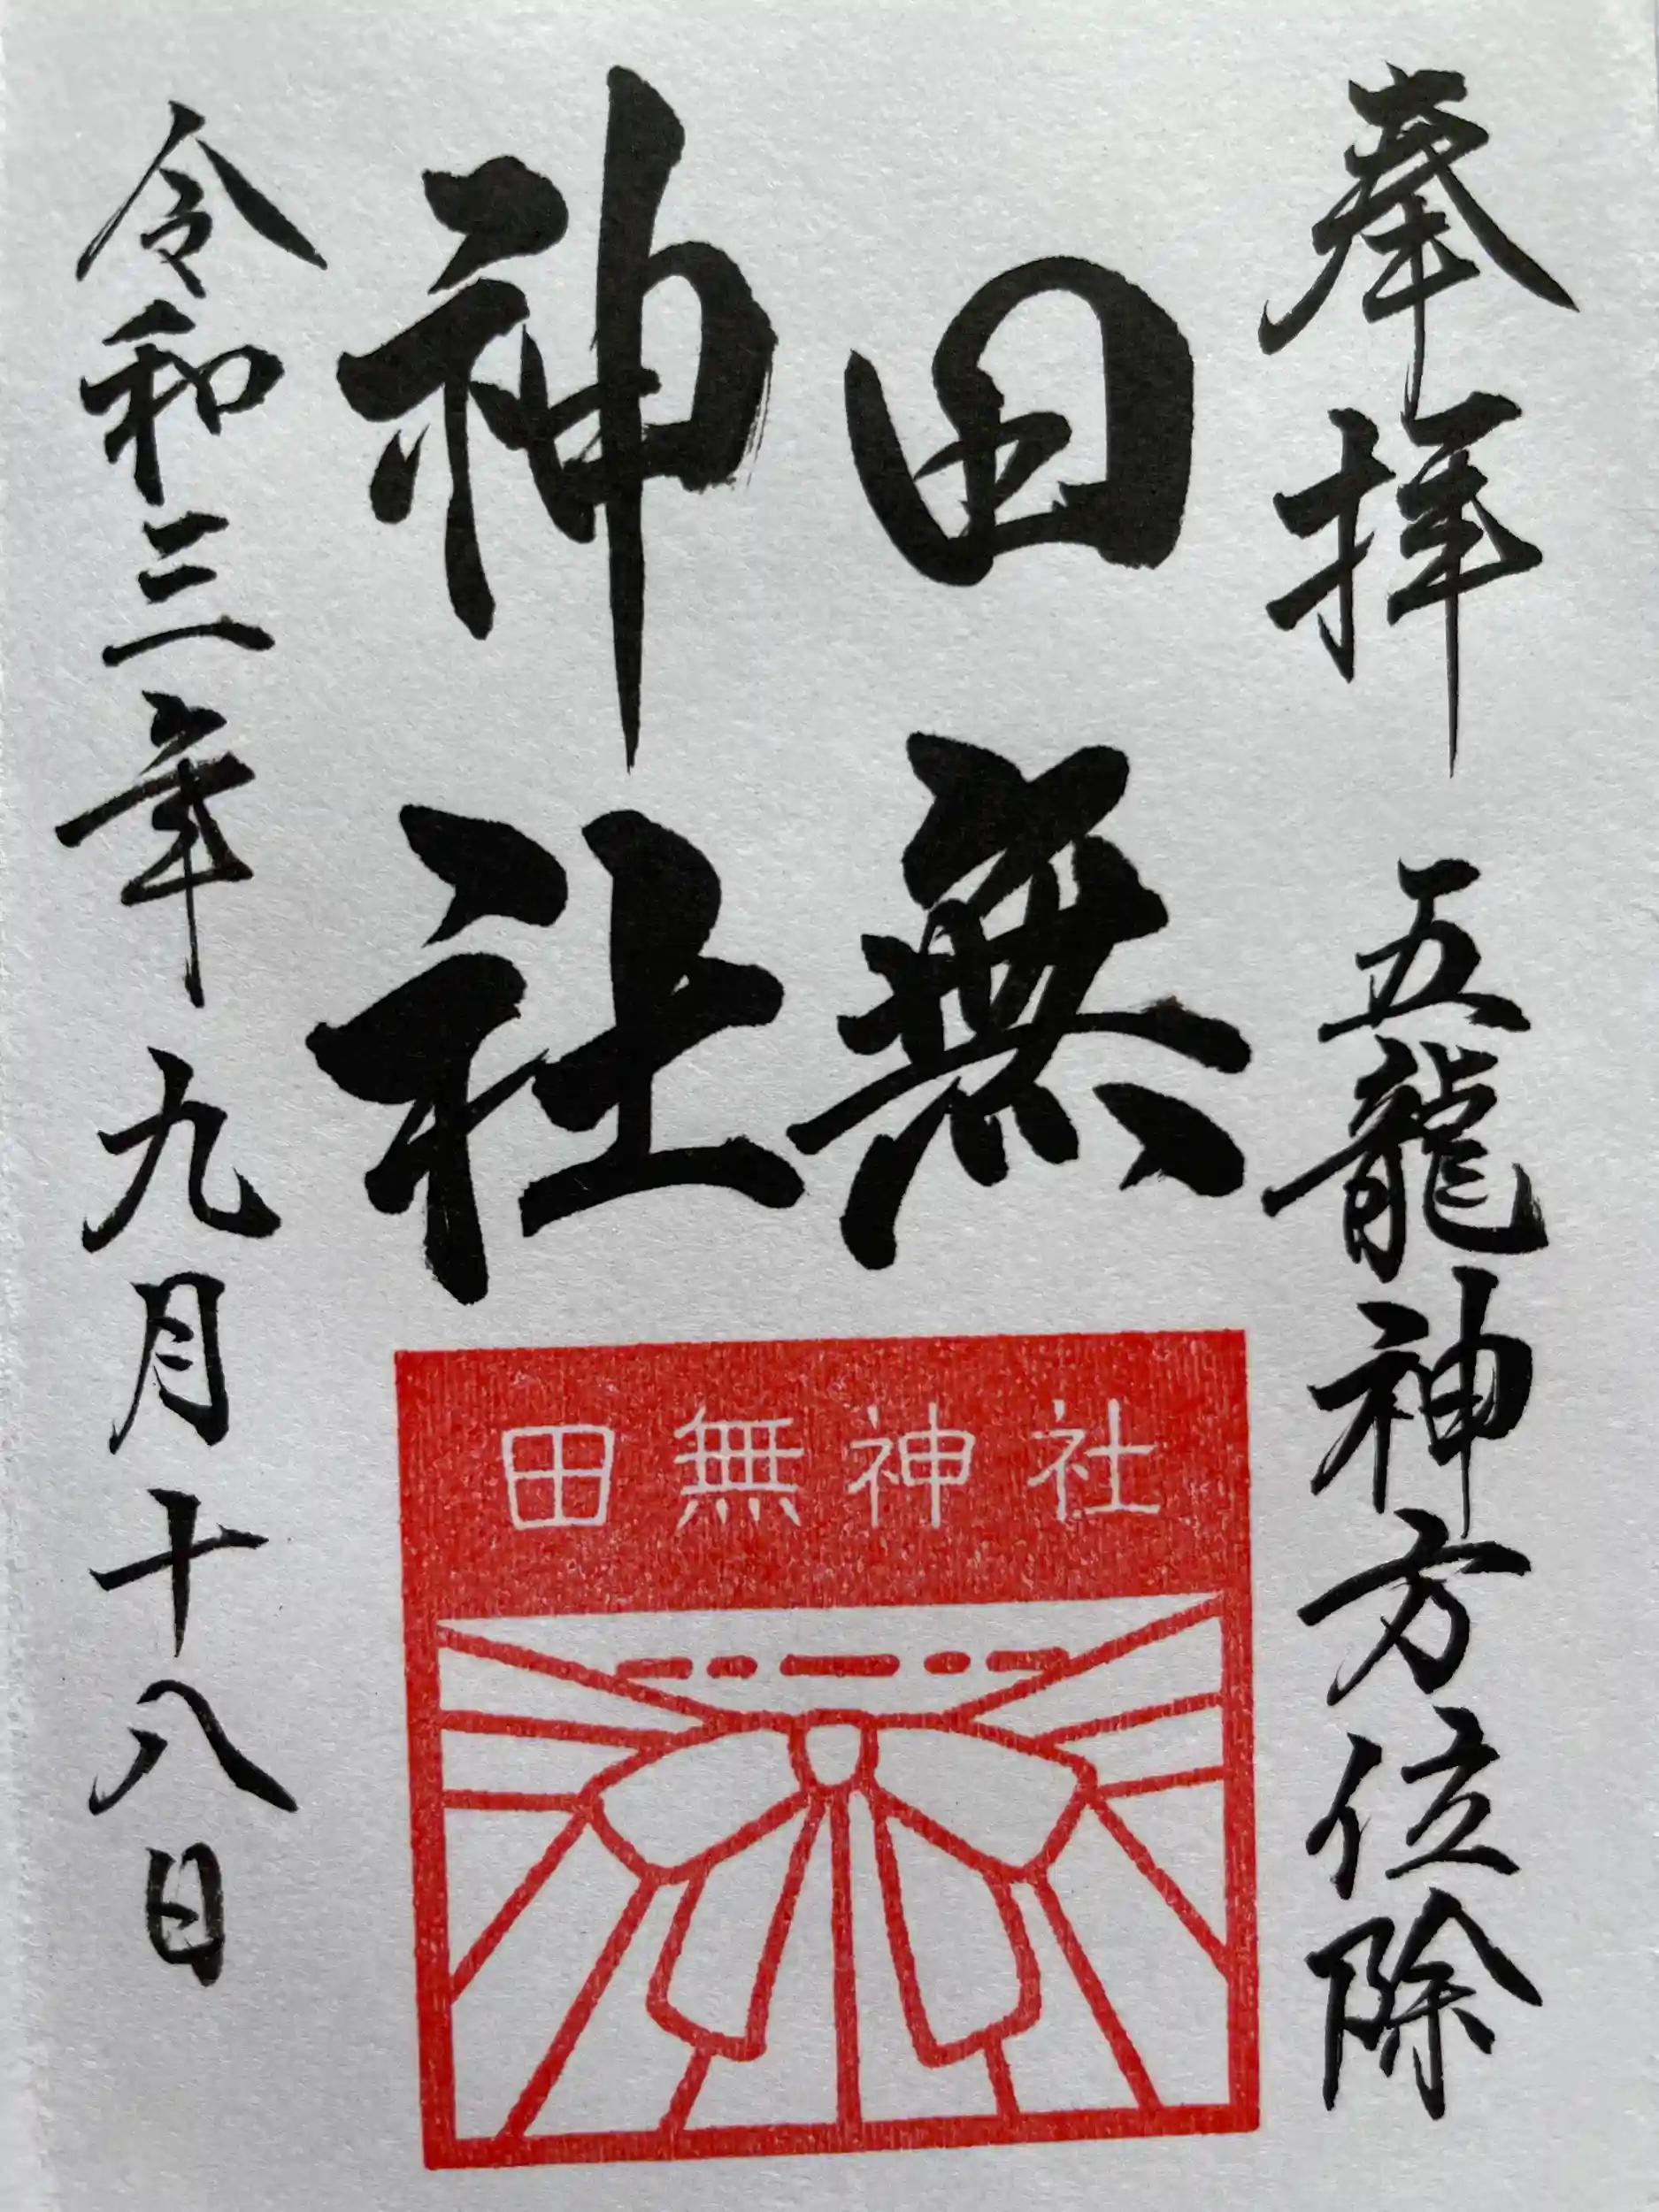 奉拝 五龍神方位除
田無
神社
令和三年九月十八日
田無神社